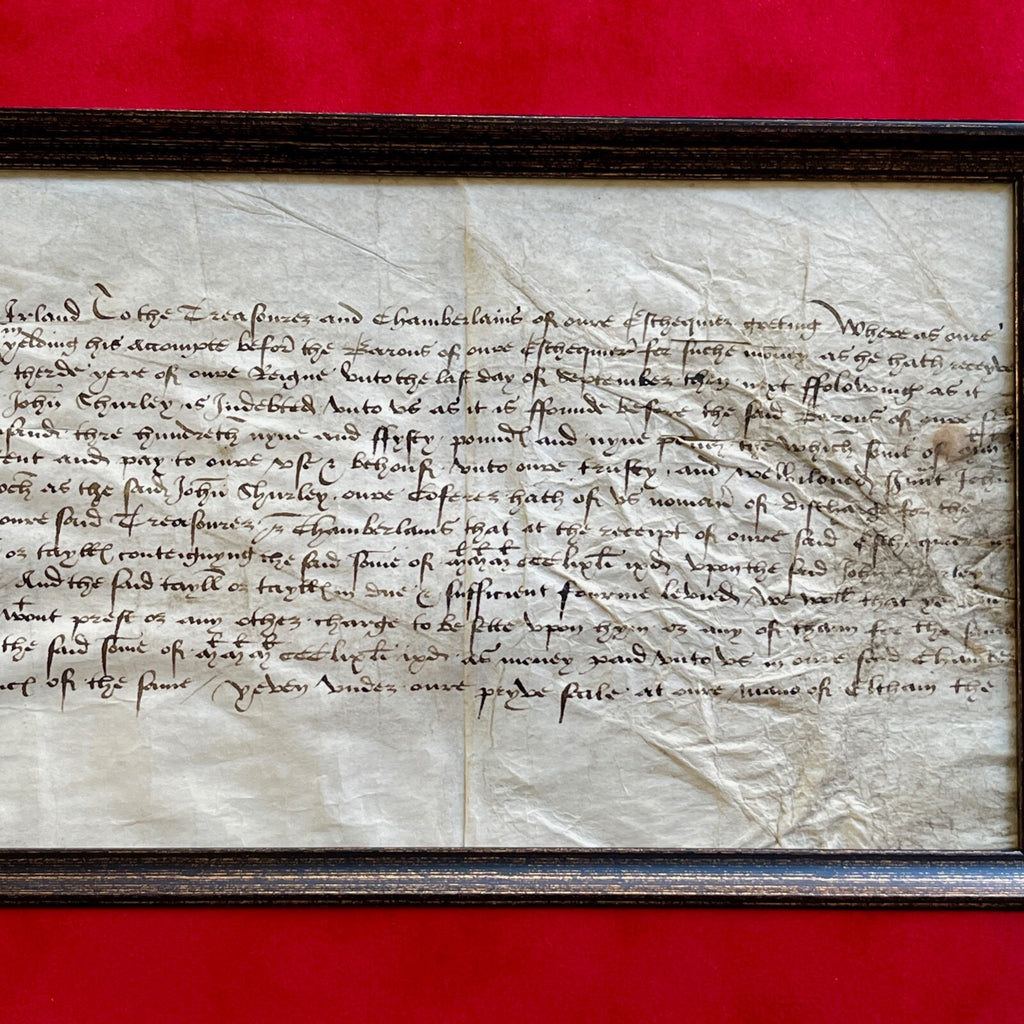 Irland To the Treasourer and Chamberlains of oure Eschequier greting Where as oure
yelding his accompte befor the Barons of oure Eschequier for suche money as he hath receyve
therde yere of oure Reigne unto the last day of September then next ffolowing as it
John Shurley is Indebted unto us as it is ffounde before the said Barons of oure said
thre hundreth nyne and ffyfty pound and nyne the which some of
ent and pay to oure use & behouf unto oure trusty and welbiloved John
as the said John Shurley oure Coferer hath of us noman of discharge for the
oure said Treasourer & Chamberlains that at the receipt of oure said Eschequier
or taylles conteignyng the said some of CCC lix li ix d upon the said John
And the said taill or tailles in due & sufficient fourme levied we woll that ye
wout prest or any other charge to be sette upon hym or any of tham for the same
the said some of CCC lix li ix d as money paid unto us in oure said Chambre
of the same yeven under oure pryve seale at oure mano of Eltham the